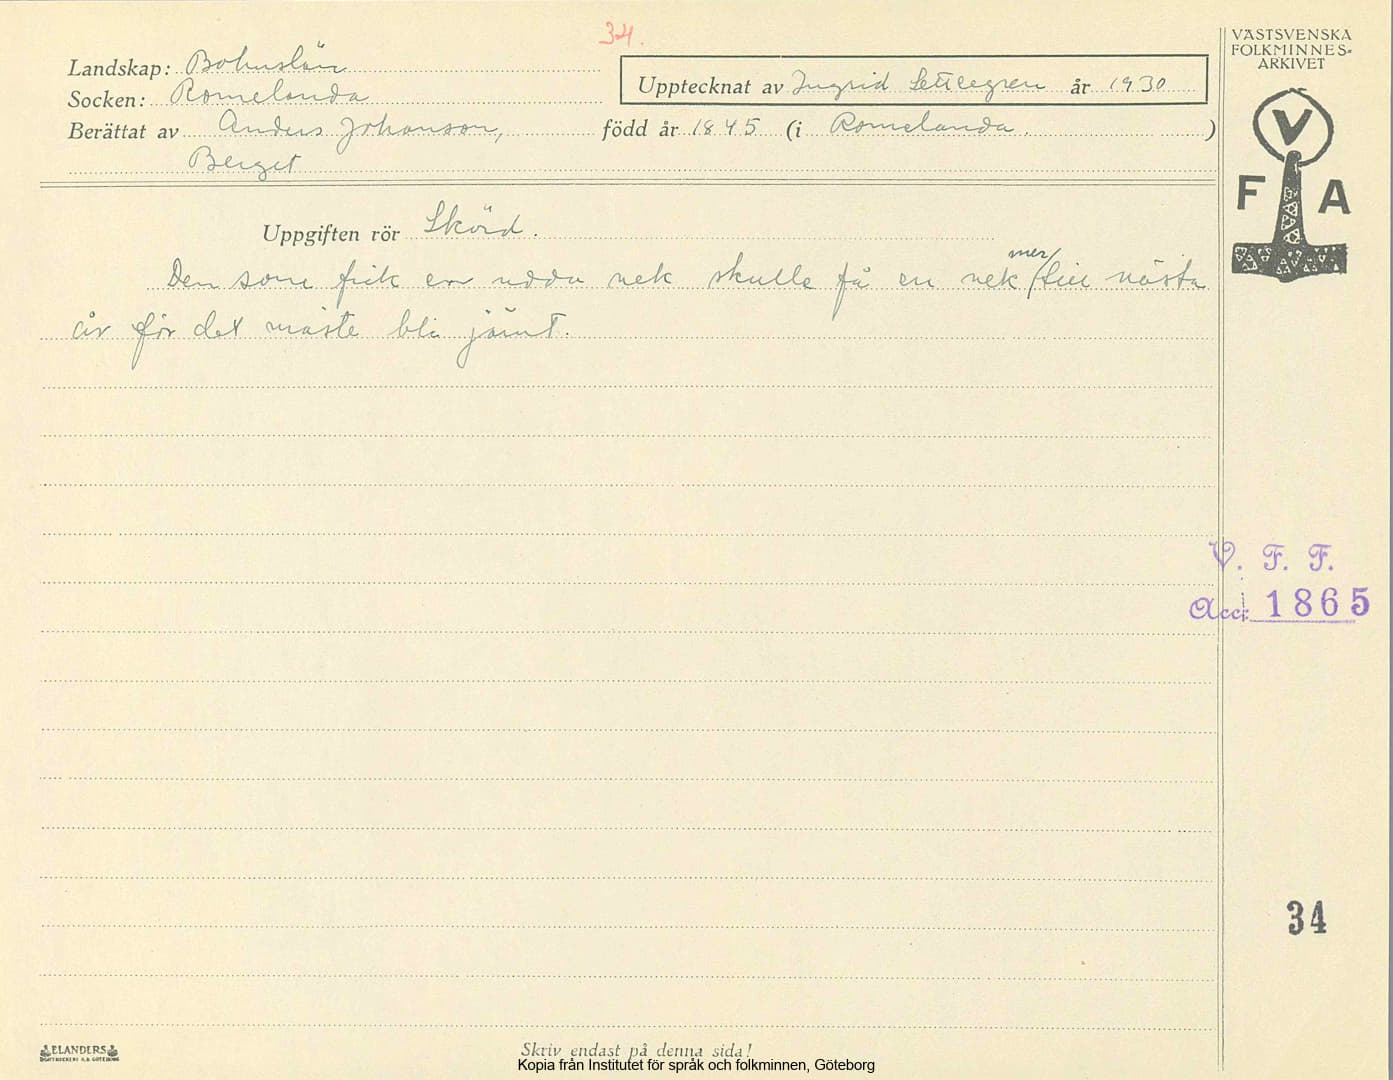 34.
VÄSTSVENSKA
FOLKMINNES-
ARKIVET
Landskap: Bohuslän
Upptecknat av Ingrid Settergren år 1930
Socken: Romelanda
Berättat av Anders Johanson, född år 1845 (i Romelanda.)
Berget
V
F A
Uppgiften rör Skörd.
Den som fick en udda nek skulle få en nek mer till nästa
år för det måste bli jämt.
V. F. F.
Acc. 1865
34
ELANDERS
BOKTRYCKERI A.B. GÖTEBORG
Skriv endast på denna sida!
Kopia från Institutet för språk och folkminnen, Göteborg